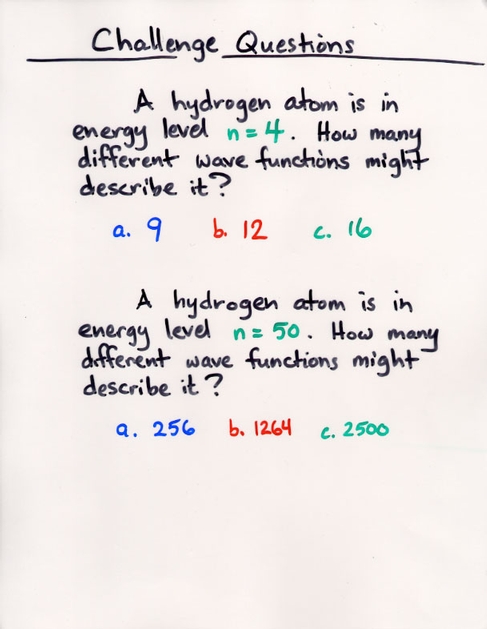 Challenge Questions
A hydrogen atom is in
energy level n = 4. How many
different wave functions might
describe it?
a. 9 b. 12 c. 16
A hydrogen atom is in
energy level n = 50. How many
different wave functions might
describe it?
a. 256 b. 1264 c. 2500